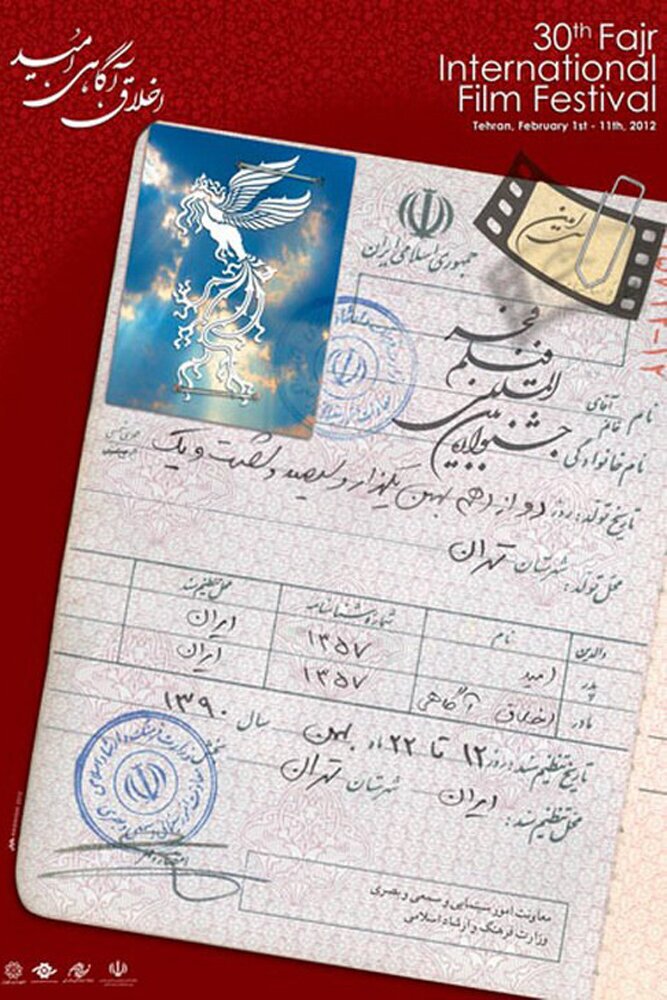 اخلاق آگاهی امید
30th Fajr
International
Film Festival
Tehran, February 1st - 11th, 2012
جمهوری اسلامی ایران
سی امین
نام آقای خانم
جشنواره بین المللی فیلم فجر
نام خانوادگی
تاریخ تولد: روز دوازدهم بهمن یکهزار و سیصد و شصت و یک
محل تولد: شهرستان تهران
والدین نام شماره شناسنامه محل تنظیم سند
پدر امید ۱۳۵۷ ایران
مادر اخلاق آگاهی ۱۳۵۷ ایران
تاریخ تنظیم سند: روز ۱۲ تا ۲۲ ماه بهمن سال ۱۳۹۰
محل تنظیم سند: ایران شهرستان تهران
معاونت امور سینمایی و سمعی و بصری
وزارت فرهنگ و ارشاد اسلامی